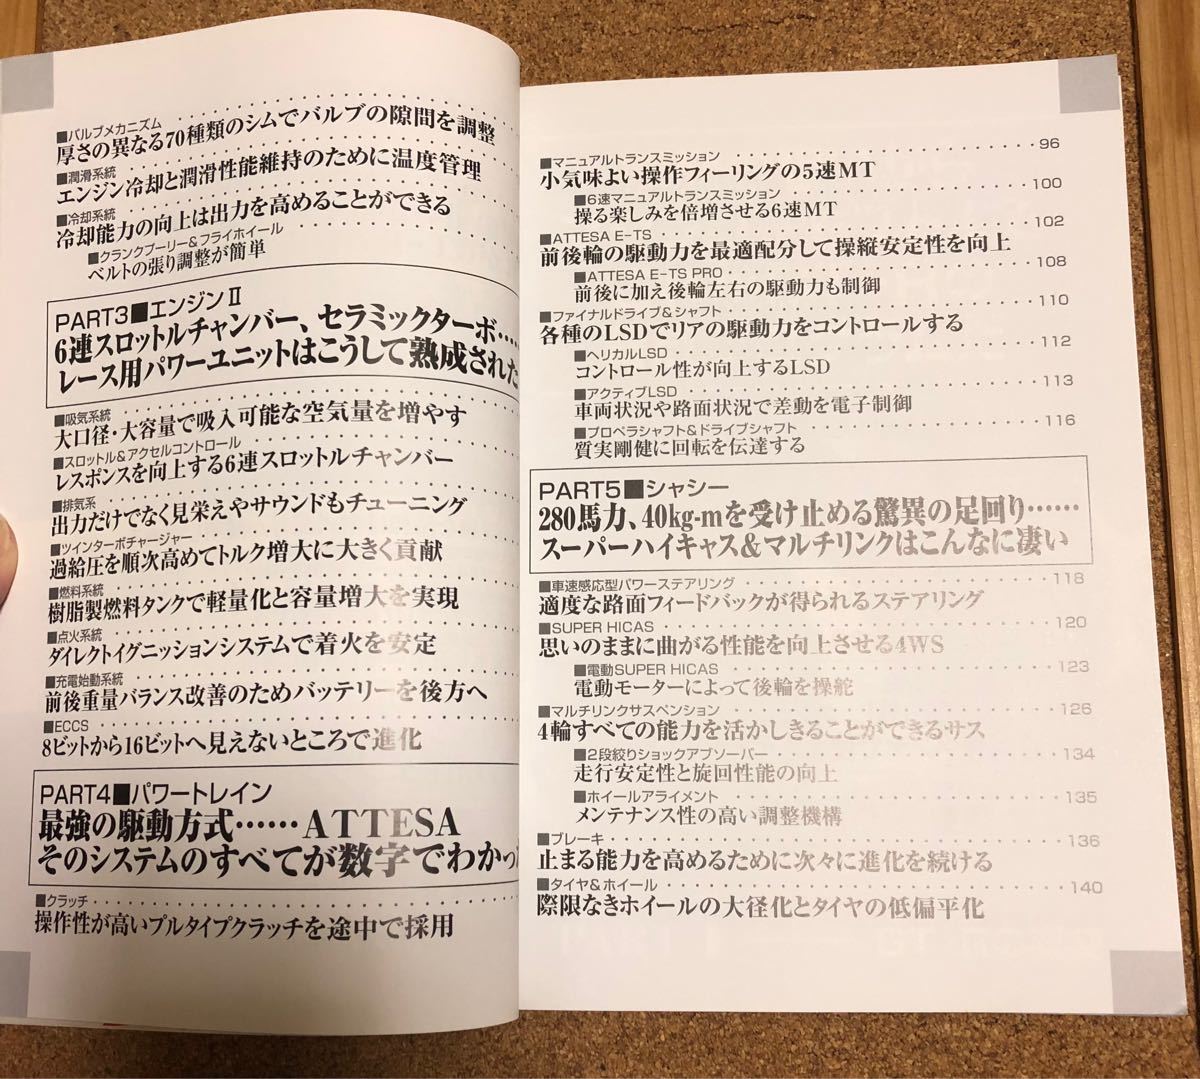 ■バルブメカニズム
厚さの異なる70種類のシムでバルブの隙間を調整
■潤滑系統
エンジン冷却と潤滑性能維持のために温度管理
■冷却系統
冷却能力の向上は出力を高めることができる
■クランクプーリー&フライホイール
ベルトの張り調整が簡単
PART3■エンジンⅡ
6連スロットルチャンバー、セラミックターボ‥‥
レース用パワーユニットはこうして熟成された
■吸気系統
大口径・大容量で吸入可能な空気量を増やす
■スロットル&アクセルコントロール
レスポンスを向上する6連スロットルチャンバー
■排気系
出力だけでなく見栄えやサウンドもチューニング
■ツインターボチャージャー
過給圧を順次高めてトルク増大に大きく貢献
■燃料系統
樹脂製燃料タンクで軽量化と容量増大を実現
■点火系統
ダイレクトイグニッションシステムで着火を安定
■充電始動系統
前後重量バランス改善のためバッテリーを後方へ
■ECCS
8ビットから16ビットへ見えないところで進化
PART4■パワートレイン
最強の駆動方式‥‥‥ATTESA
そのシステムのすべてが数字でわかっ
■クラッチ
操作性が高いプルタイプクラッチを途中で採用
■マニュアルトランスミッション 96
小気味よい操作フィーリングの5速MT
■6速マニュアルトランスミッション 100
操る楽しみを倍増させる6速MT
■ATTESA E-TS 102
前後輪の駆動力を最適配分して操縦安定性を向上
■ATTESA E-TS PRO 108
前後に加え後輪左右の駆動力も制御
■ファイナルドライブ&シャフト 110
各種のLSDでリアの駆動力をコントロールする
■ヘリカルLSD 112
コントロール性が向上するLSD
■アクティブLSD 113
車両状況や路面状況で差動を電子制御
■プロペラシャフト&ドライブシャフト 116
質実剛健に回転を伝達する
PART5■シャシー
280馬力、40kg-mを受け止める驚異の足回り‥‥‥
スーパーハイキャス&マルチリンクはこんなに凄い
■車速感応型パワーステアリング 118
適度な路面フィードバックが得られるステアリング
■SUPER HICAS 120
思いのままに曲がる性能を向上させる4WS
■電動SUPER HICAS 123
電動モーターによって後輪を操舵
■マルチリンクサスペンション 126
4輪すべての能力を活かしきることができるサス
■2段絞りショックアブソーバー 134
走行安定性と旋回性能の向上
■ホイールアライメント 135
メンテナンス性の高い調整機構
■ブレーキ 136
止まる能力を高めるために次々に進化を続ける
■タイヤ&ホイール 140
際限なきホイールの大径化とタイヤの低偏平化